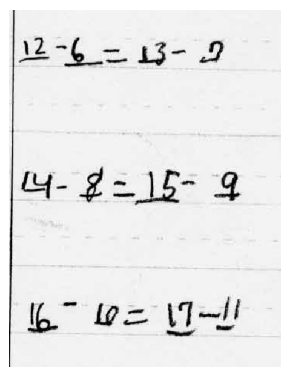 12 - 6 = 13 - 7
14 - 8 = 15 - 9
16 - 10 = 17 - 11